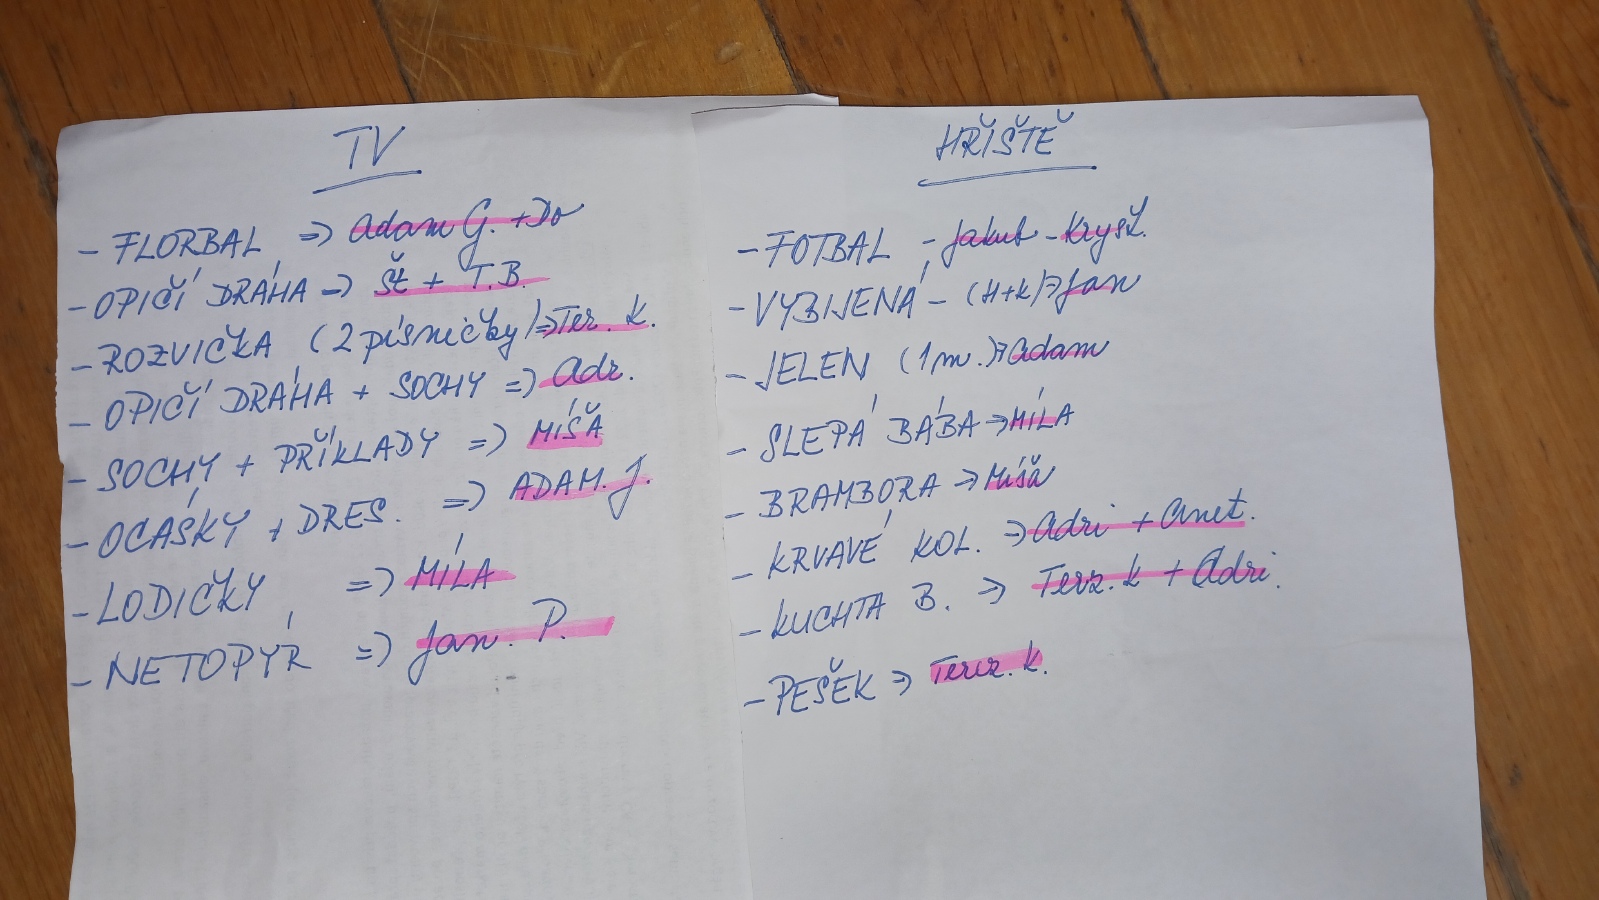 TV
- FLORBAL => Adam G. + Do
- OPIČÍ DRÁHA => Št + T.B.
- ROZVIČKA (2 písničky) => Ter. K.
- OPIČÍ DRÁHA + SOCHY => Adr.
- SOCHY + PŘÍKLADY => MÍŠA
- OCÁSKY + DRES. => ADAM. J.
- LODIČKY => MÍLA
- NETOPÝR => Jan. P.
HŘIŠTĚ
- FOTBAL - Jakub - Kryšt.
- VYBIJENÁ - (H+K) => Jan
- JELEN (1m.) => Adam
- SLEPÁ BÁBA => MÍLA
- BRAMBORA => Míša
- KRVAVÉ KOL. => Adri + Anet.
- KUCHTA B. => Terz. K + Adri.
- PEŠEK => Terez. K.